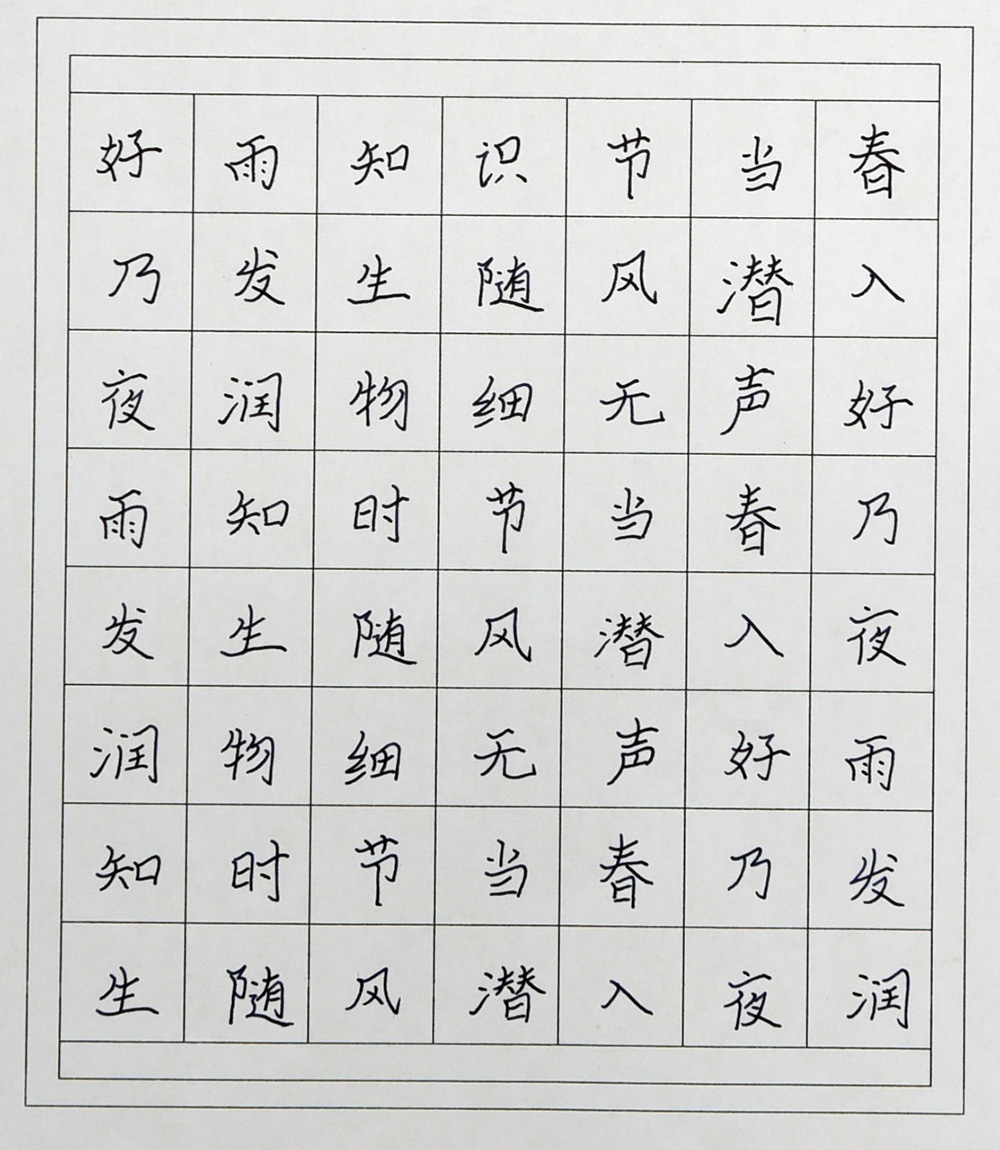 好雨知识节当春
乃发生随风潜入
夜润物细无声好
雨知时节当春乃
发生随风潜入夜
润物细无声好雨
知时节当春乃发
生随风潜入夜润